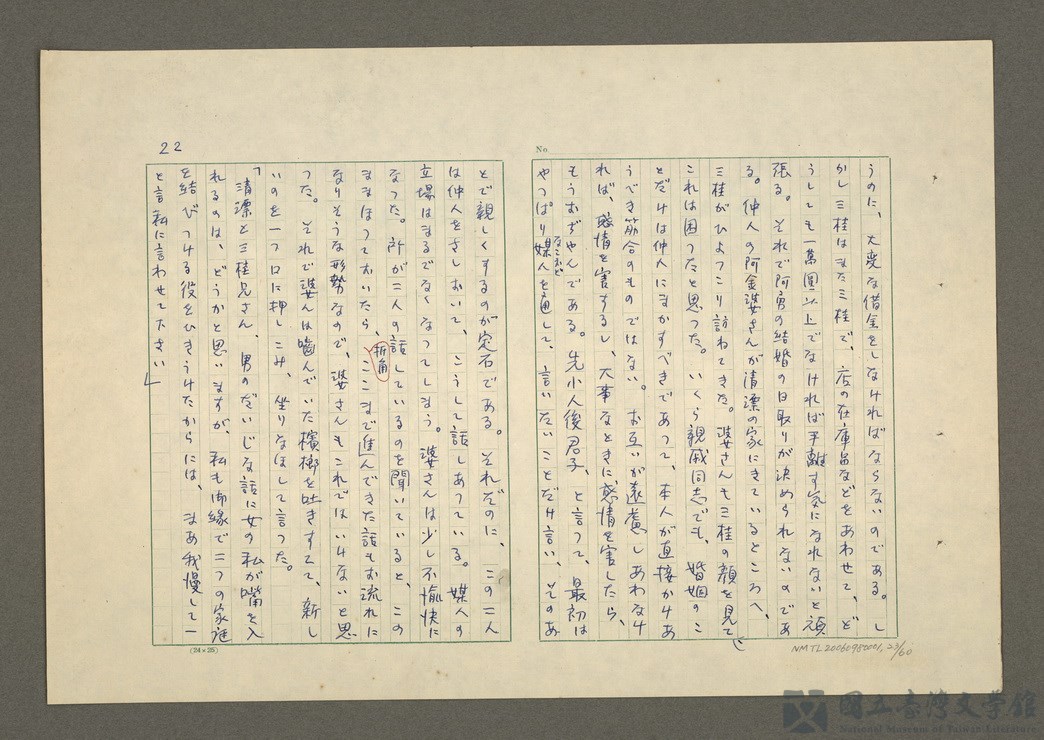 No
うのに、大変な借金をしなければならないのである。し
かし三桂はまた三桂で、店の在庫品などをあわせて、ど
うしても一萬圓以上でなければ手離す気になれないと頑
張る。それで阿勇の結婚の日取りが決められないのであ
る。仲人の阿金婆さんが清漂の家にきているところへ、
三桂がひょっこり訪ねてきた。婆さんも三桂の顔を見て、
これは困ったと思った。いくら親戚同志でも、婚姻のこ
とだけは仲人にまかすべきであって、本人が直接かけあ
うべき筋合のものではない。お互いが遠慮しあわなけ
れば、感情を害するし、大事なときに感情を害したら、
もうおぢゃんである。先小人後君子、と言って、最初は
やっぱり媒人を通して、言いたいことだけ言い、そのあ
なこおど
22
とで親しくするのが定石である。それだのに、この二人
は仲人をさしおいて、こうして話しあっている。媒人の
立場はまるでなくなってしまう。婆さんは少し不愉快に
なった。所が二人の話しているのを聞いていると、この
ままほっておいたら、折角ここまで進んできた話もお流れに
なりそうな形勢なので、婆さんもこれではいけないと思
った。それで婆さんは噛んでいた檳榔を吐きすてて、新し
いのを一つ口に押しこみ、坐りなほして言った。
「清漂と三桂兄さん、男のだいじな話に女の私が嘴を入
れるのは、どうかと思いますが、私も御縁で二つの家庭
を結びつける役をひきうけたからには、まあ我慢して一
と言私に言わせて下さい」
(24×25)
NMTL20060980001, 23/60
國立臺灣文學館
National Museum of Taiwan Literature